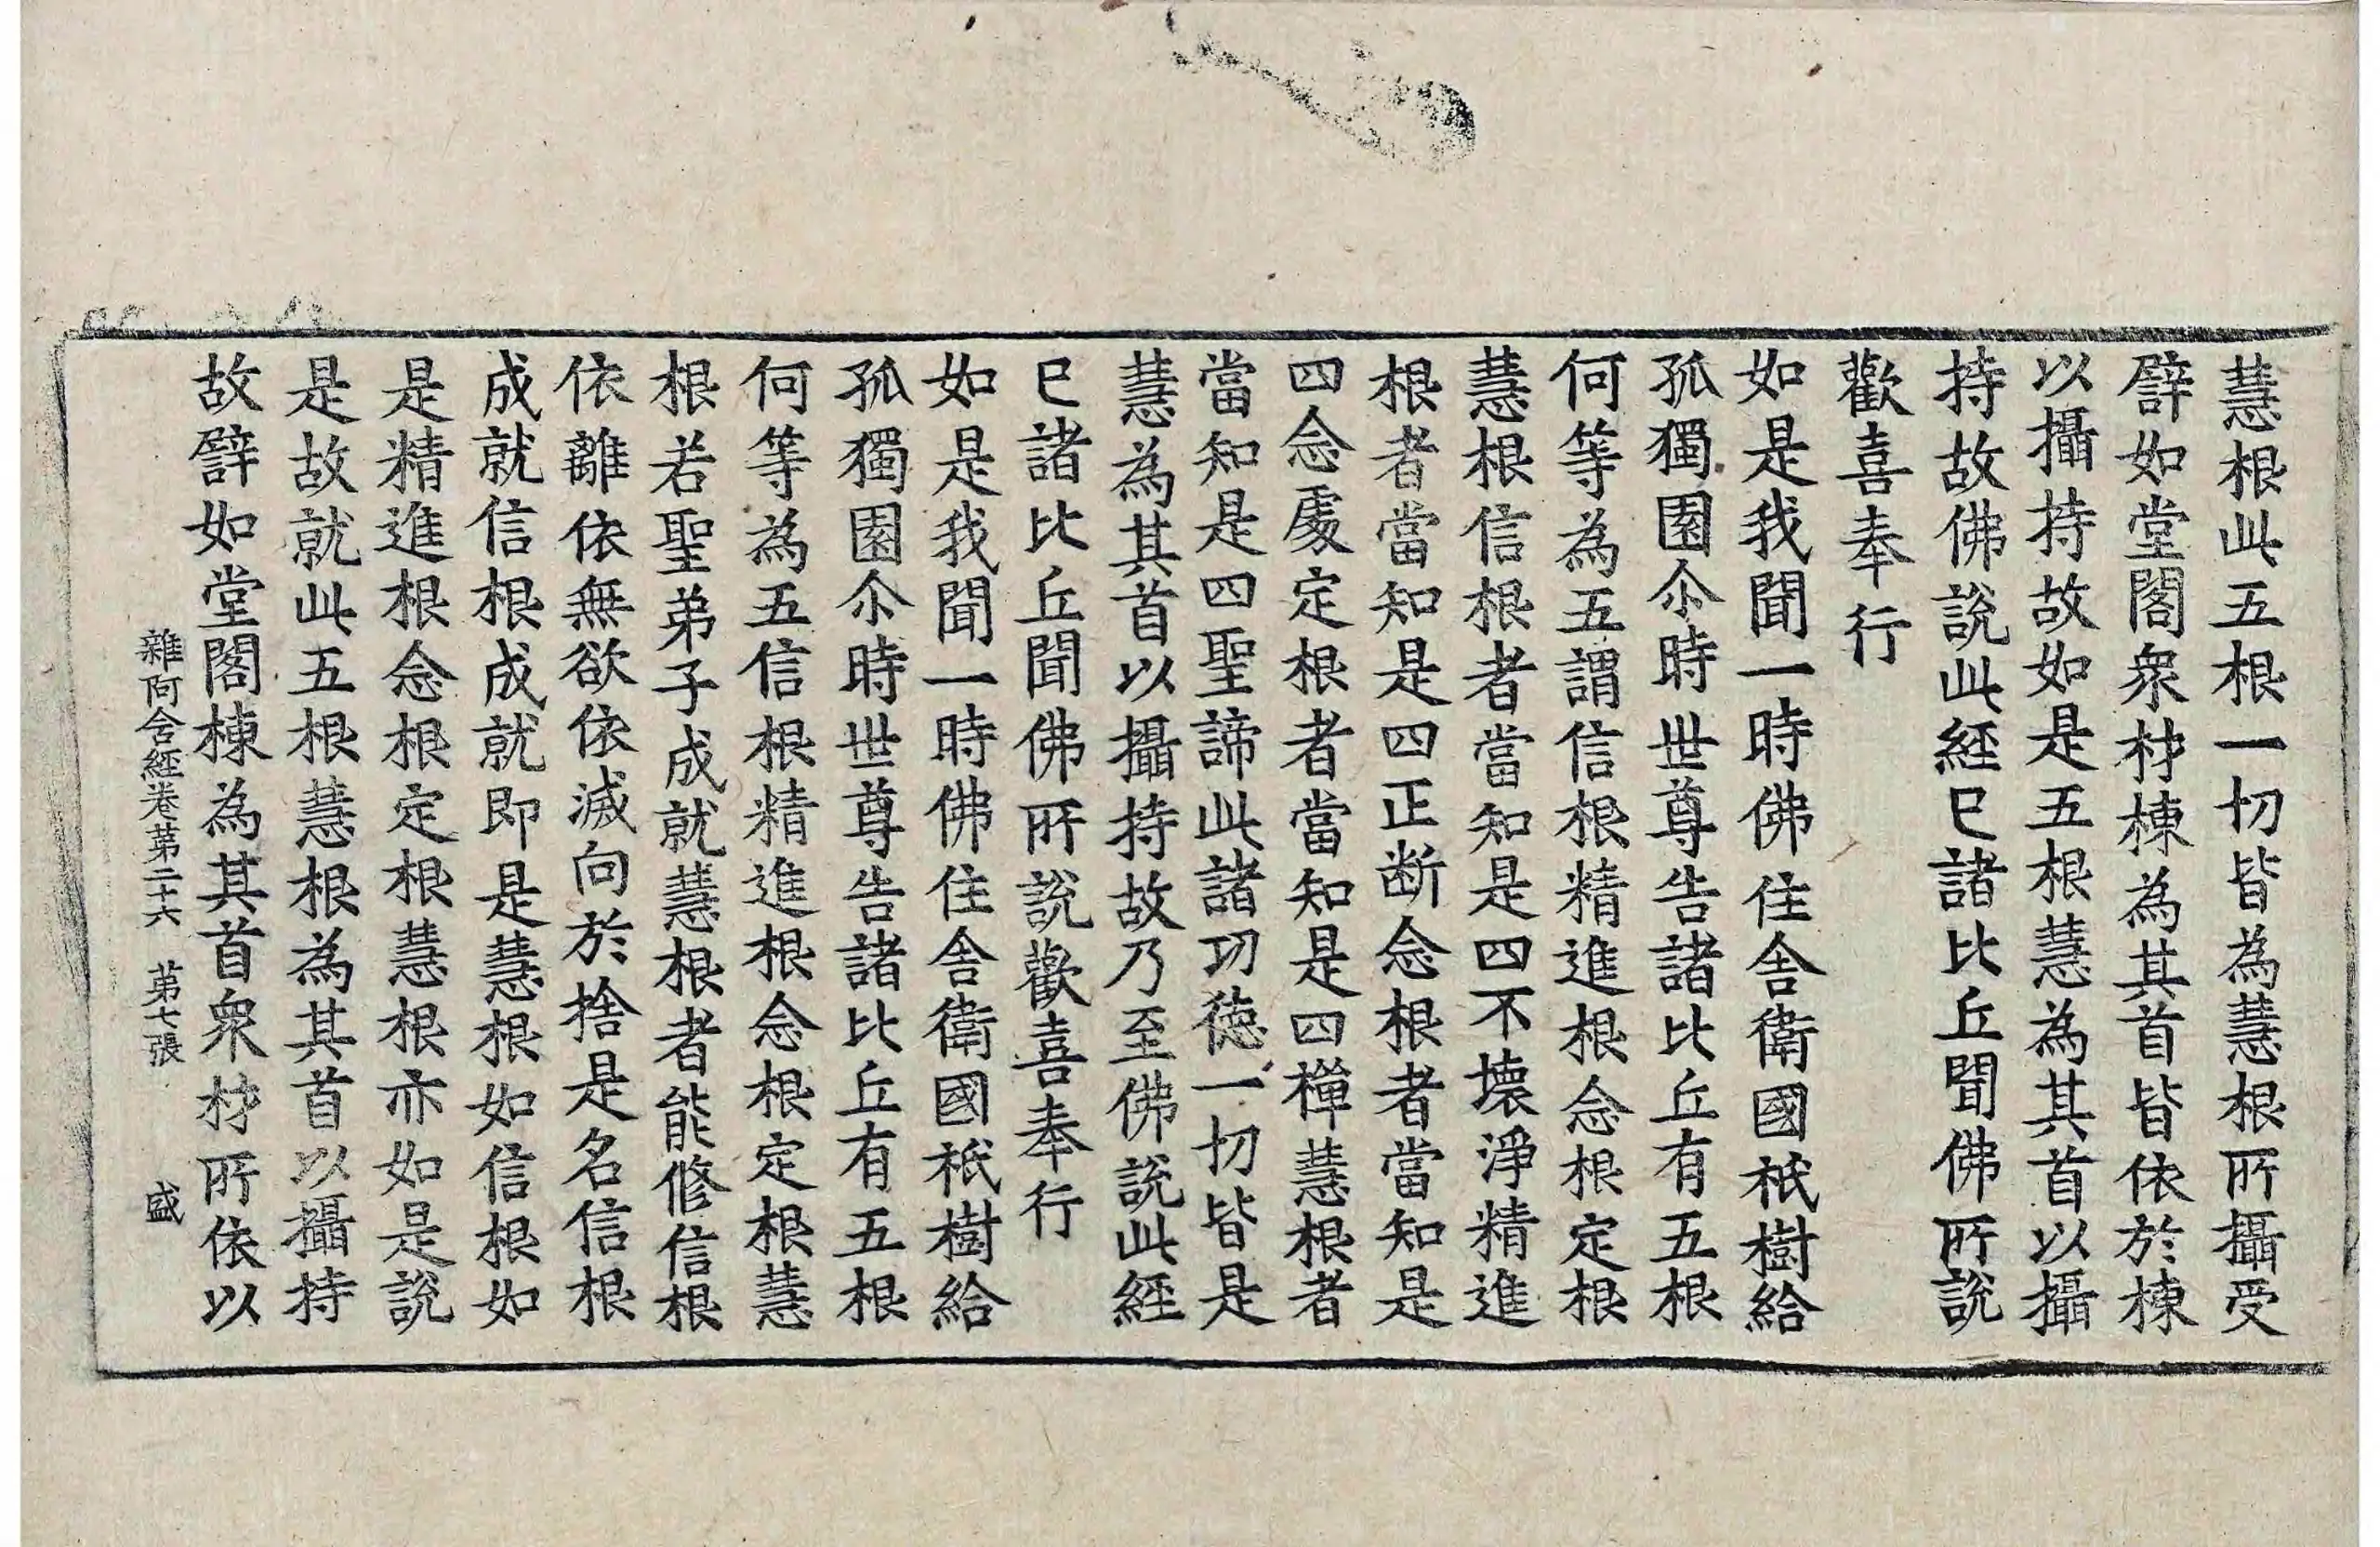 慧根此五根一切皆為慧根所攝受
譬如堂閣衆材棟為其首皆依於棟
以攝持故如是五根慧為其首以攝
持故佛說此經已諸比丘聞佛所說
歡喜奉行
如是我聞一時佛住舍衛國祇樹給
孤獨園尒時世尊告諸比丘有五根
何等為五謂信根精進根念根定根
慧根信根者當知是四不壞淨精進
根者當知是四正断念根者當知是
四念處定根者當知是四禪慧根者
當知是四聖諦此諸功德一切皆是
慧為其首以攝持故乃至佛說此經
已諸比丘聞佛所說歡喜奉行
如是我聞一時佛住舍衛國祇樹給
孤獨園尒時世尊告諸比丘有五根
何等為五信根精進根念根定根慧
根若聖弟子成就慧根者能修信根
依離依無欲依滅向於捨是名信根
成就信根成就即是慧根如信根如
是精進根念根定根慧根亦如是說
是故就此五根慧根為其首以攝持
故譬如堂閣棟為其首衆材所依以
雜阿含經卷第二十六 第七張 盛